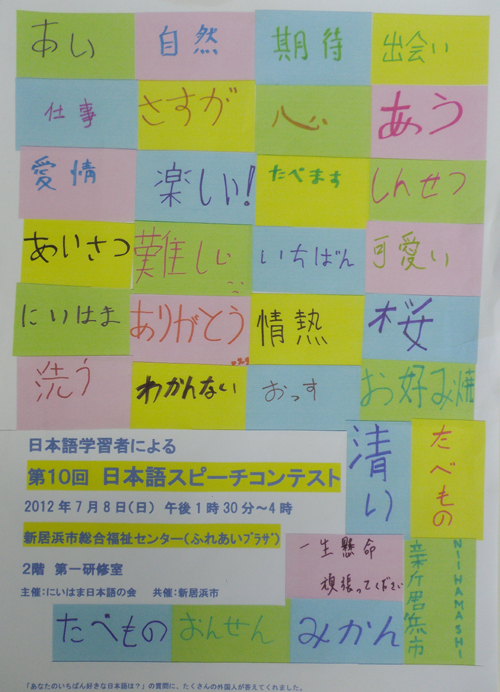 あい
自然
期待
出会い
仕事
さすが
心
あう
愛情
楽しい!
たべます
しんせつ
あいさつ
難しい
いちばん
可愛い
にいはま
ありがとう
情熱
桜
洗う
わかんない
おっす
お好み焼
清い
たべもの
日本語学習者による
第10回 日本語スピーチコンテスト
2012年7月8日(日) 午後1時30分～4時
新居浜市総合福祉センター(ふれあいﾌﾟﾗｻﾞ)
2階 第一研修室
主催:にいはま日本語の会 共催:新居浜市
一生懸命
頑張ってください
NIIHAMASHI
新居浜市
たべもの
おんせん
みかん
「あなたのいちばん好きな日本語は?」の質問に、たくさんの外国人が答えてくれました。